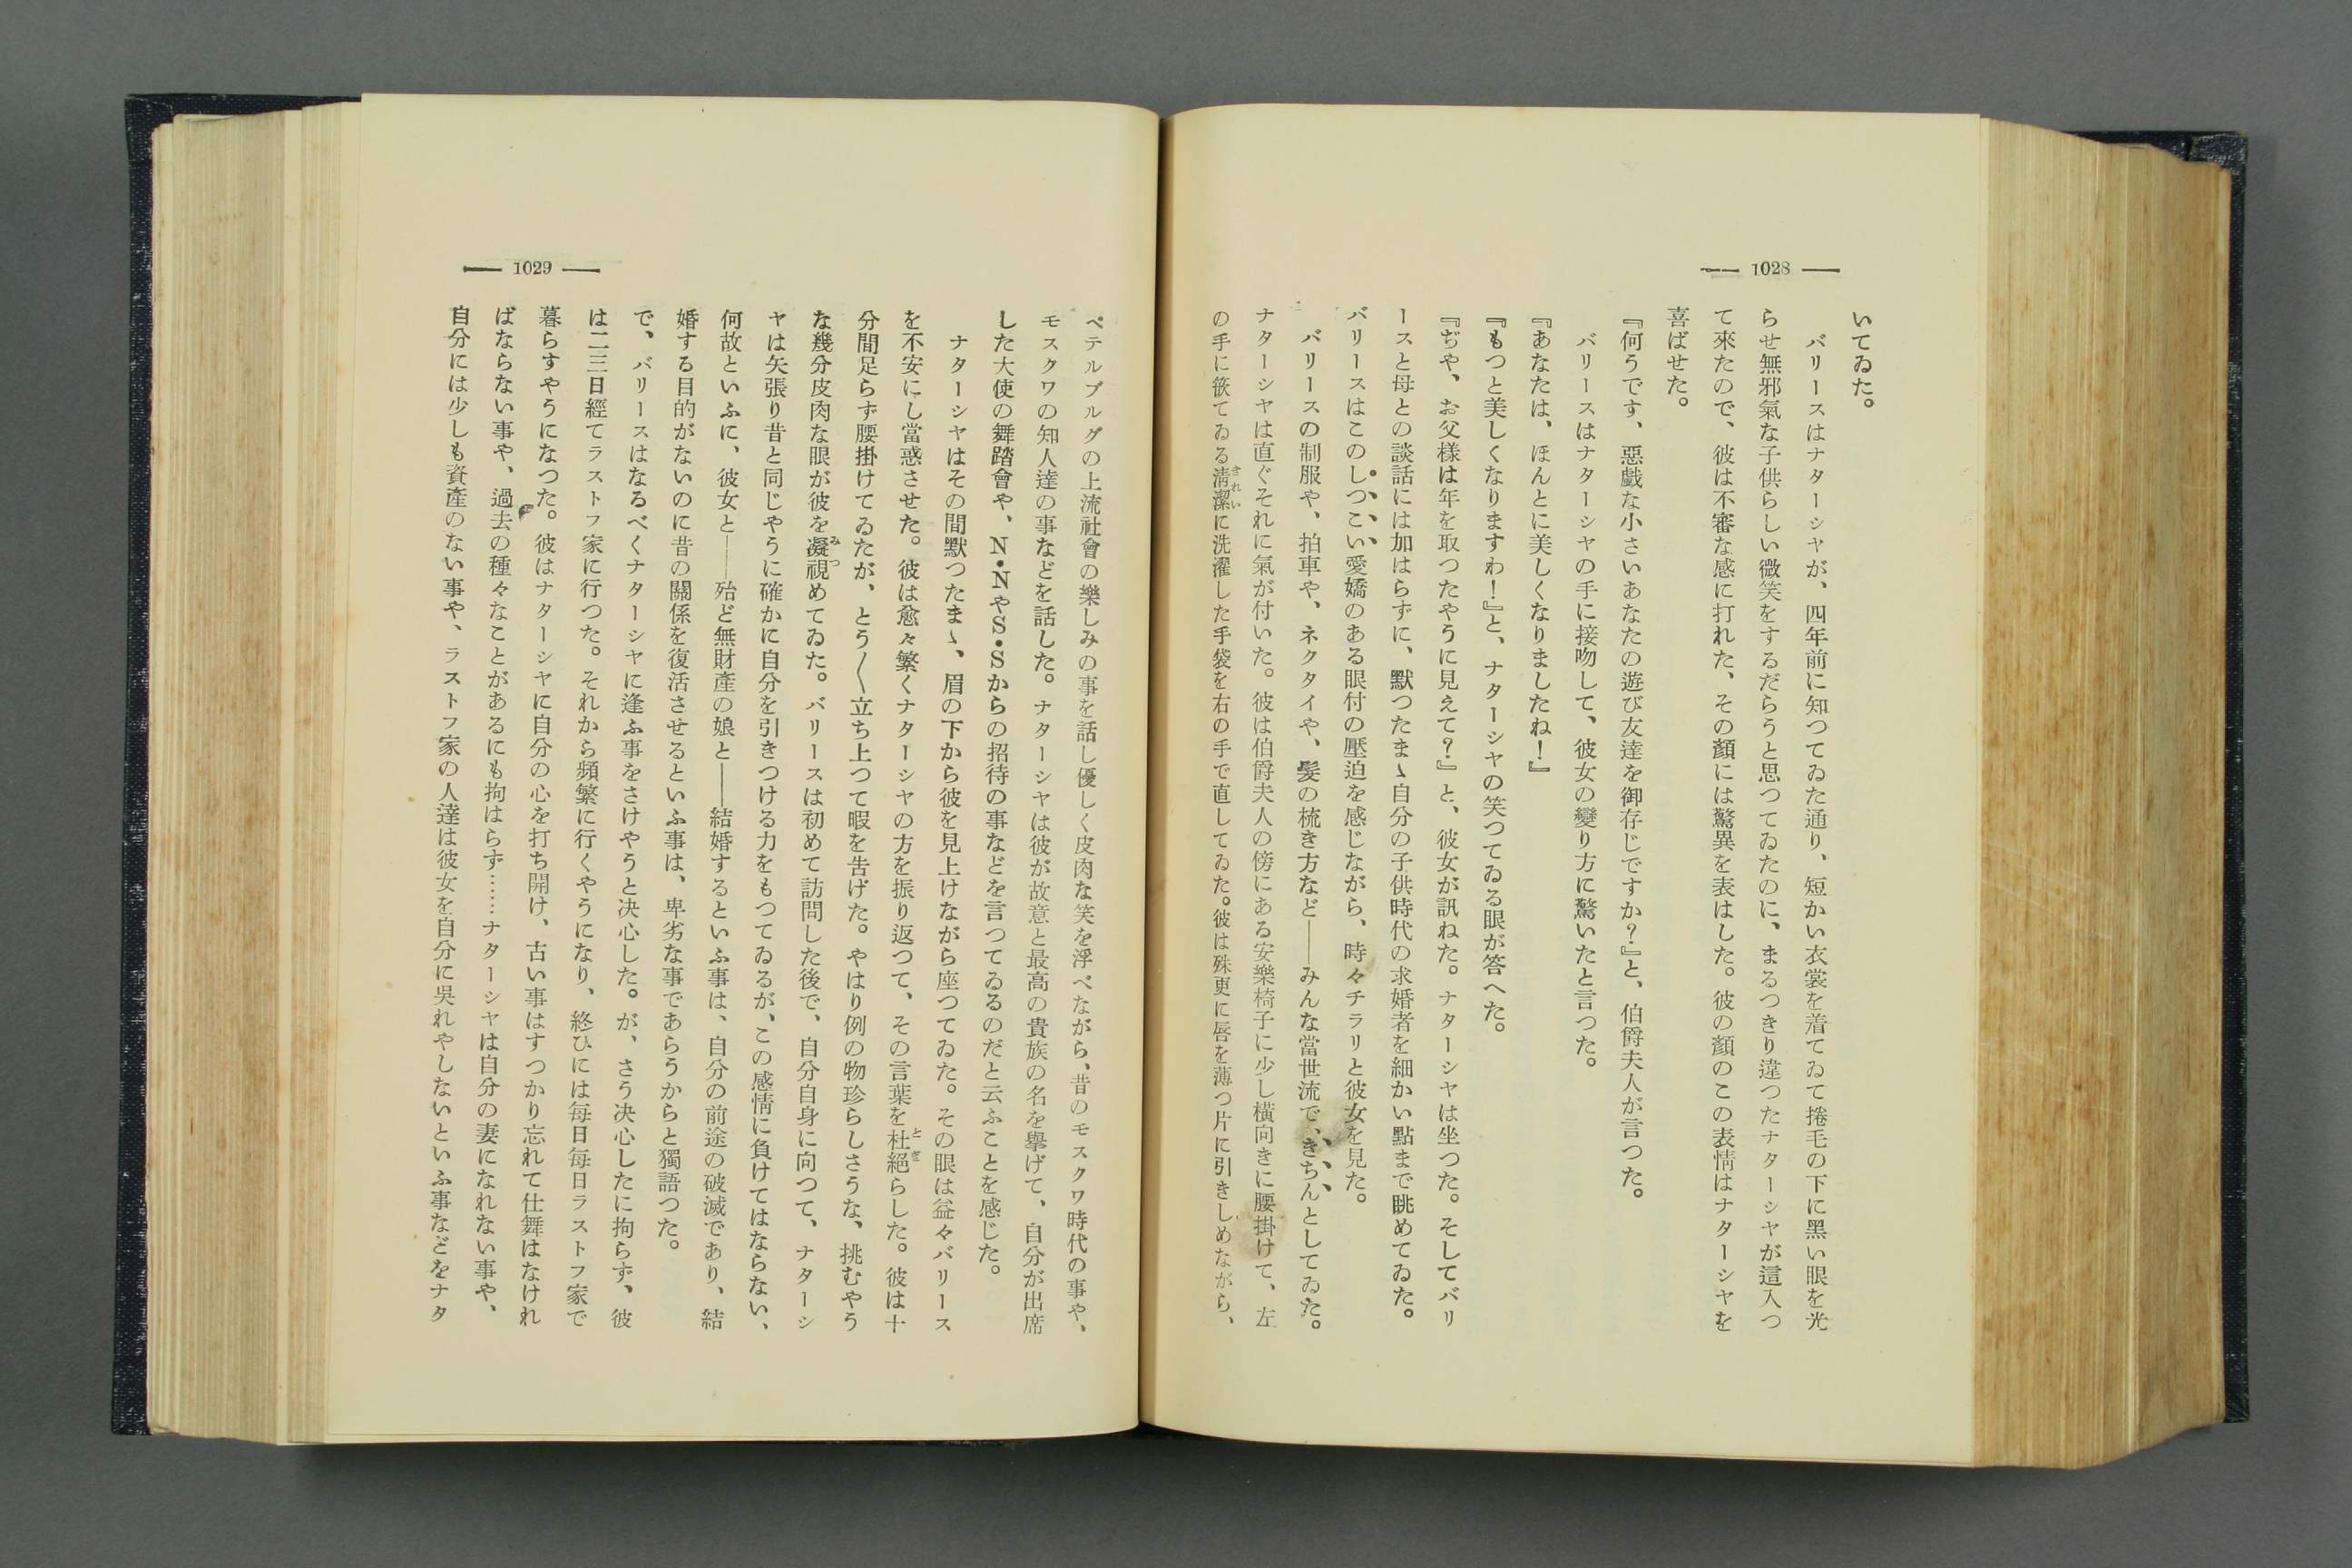 — 1028 —
いてゐた。
バリースはナターシヤが、四年前に知つてゐた通り、短かい衣裳を着てゐて捲毛の下に黑い眼を光
らせ無邪氣な子供らしい微笑をするだらうと思つてゐたのに、まるつきり違つたナターシヤが這入つ
て來たので、彼は不審な感に打れた、その顏には驚異を表はした。彼の顏のこの表情はナターシヤを
喜ばせた。
『何うです、惡戲な小さいあなたの遊び友達を御存じですか?』と、伯爵夫人が言つた。
バリースはナターシヤの手に接吻して、彼女の變り方に驚いたと言つた。
『あなたは、ほんとに美しくなりましたね!』
『もつと美しくなりますわ!』と、ナターシヤの笑つてゐる眼が答へた。
『ぢや、お父樣は年を取つたやうに見えて?』と、彼女が訊ねた。ナターシヤは坐つた。そしてバリ
ースと母との談話には加はらずに、默つたまゝ自分の子供時代の求婚者を細かい點まで眺めてゐた。
バリースはこのしつこい愛嬌のある眼付の壓迫を感じながら、時々チラリと彼女を見た。
バリースの制服や、拍車や、ネクタイや、髮の梳き方など——みんな當世流で、きちんとしてゐた。
ナターシヤは直ぐそれに氣が付いた。彼は伯爵夫人の傍にある安樂椅子に少し橫向きに腰掛けて、左
の手に篏てゐる淸潔に洗濯した手袋を右の手で直してゐた。彼は殊更に唇を薄つ片に引きしめながら、
— 1029 —
ペテルブルグの上流社會の樂しみの事を話し優しく皮肉な笑を浮べながら、昔のモスクワ時代の事や、
モスクワの知人達の事などを話した。ナターシヤは彼が故意と最高の貴族の名を擧げて、自分が出席
した大使の舞踏會や、N・NやS・Sからの招待の事などを言つてゐるのだと云ふことを感じた。
ナターシヤはその間默つたまゝ、眉の下から彼を見上けながら座つてゐた。その眼は益々バリース
を不安にし當惑させた。彼は愈々繁くナターシヤの方を振り返つて、その言葉を杜絕らした。彼は十
分間足らず腰掛けてゐたが、とう〱立ち上つて暇を告げた。やはり例の物珍らしさうな、挑むやう
な幾分皮肉な眼が彼を凝視めてゐた。バリースは初めて訪問した後で、自分自身に向つて、ナターシ
ヤは矢張り昔と同じやうに確かに自分を引きつける力をもつてゐるが、この感情に負けてはならない、
何故といふに、彼女と——殆ど無財產の娘と——結婚するといふ事は、自分の前途の破滅であり、結
婚する目的がないのに昔の關係を復活させるといふ事は、卑劣な事であらうからと獨語つた。
で、バリースはなるべくナターシヤに逢ふ事をさけやうと决心した。が、さう決心したに拘らず、彼
は二三日經てラストフ家に行つた。それから頻繁に行くやうになり、終ひには每日每日ラストフ家で
暮らすやうになつた。彼はナターシヤに自分の心を打ち開け、古い事はすつかり忘れて仕舞はなけれ
ばならない事や、過去の種々なことがあるにも拘はらず……ナターシヤは自分の妻になれない事や、
自分には少しも資產のない事や、ラストフ家の人達は彼女を自分に吳れやしないといふ事などをナタ